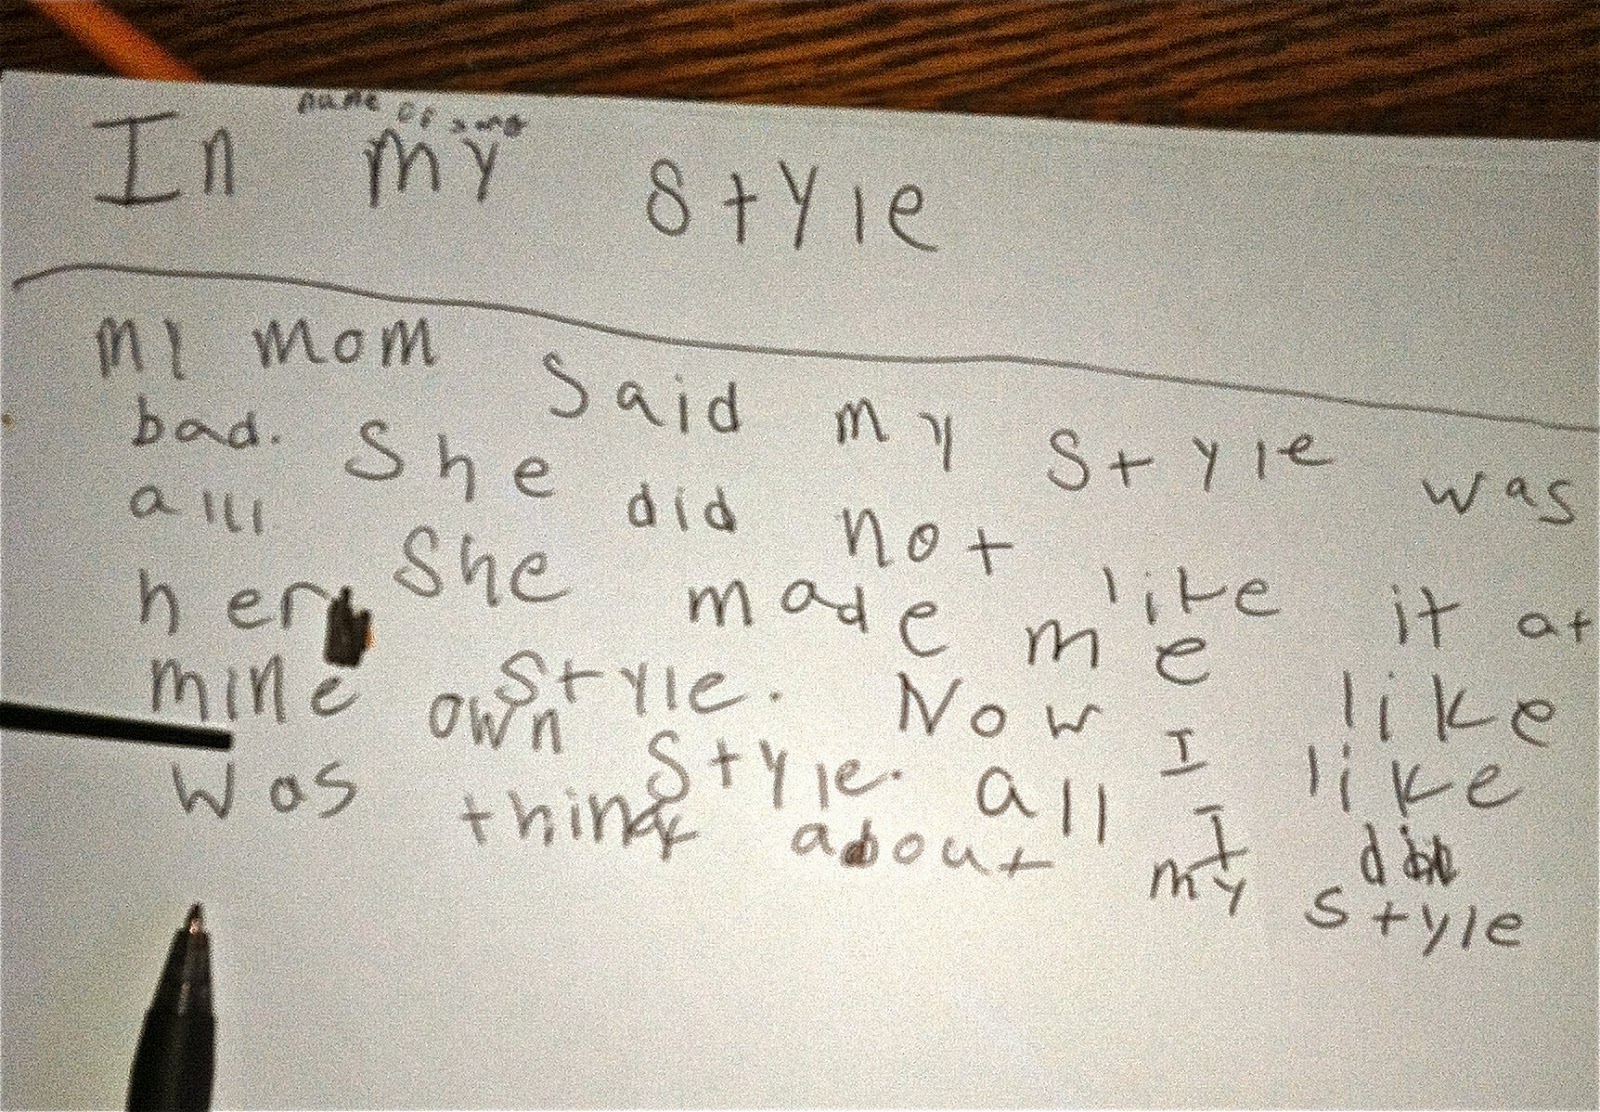 name of song
In my style
my mom said my style was
bad. She did not like it at
alll She made me like
her style. Now I like
mine own style. all I did
was think about my style